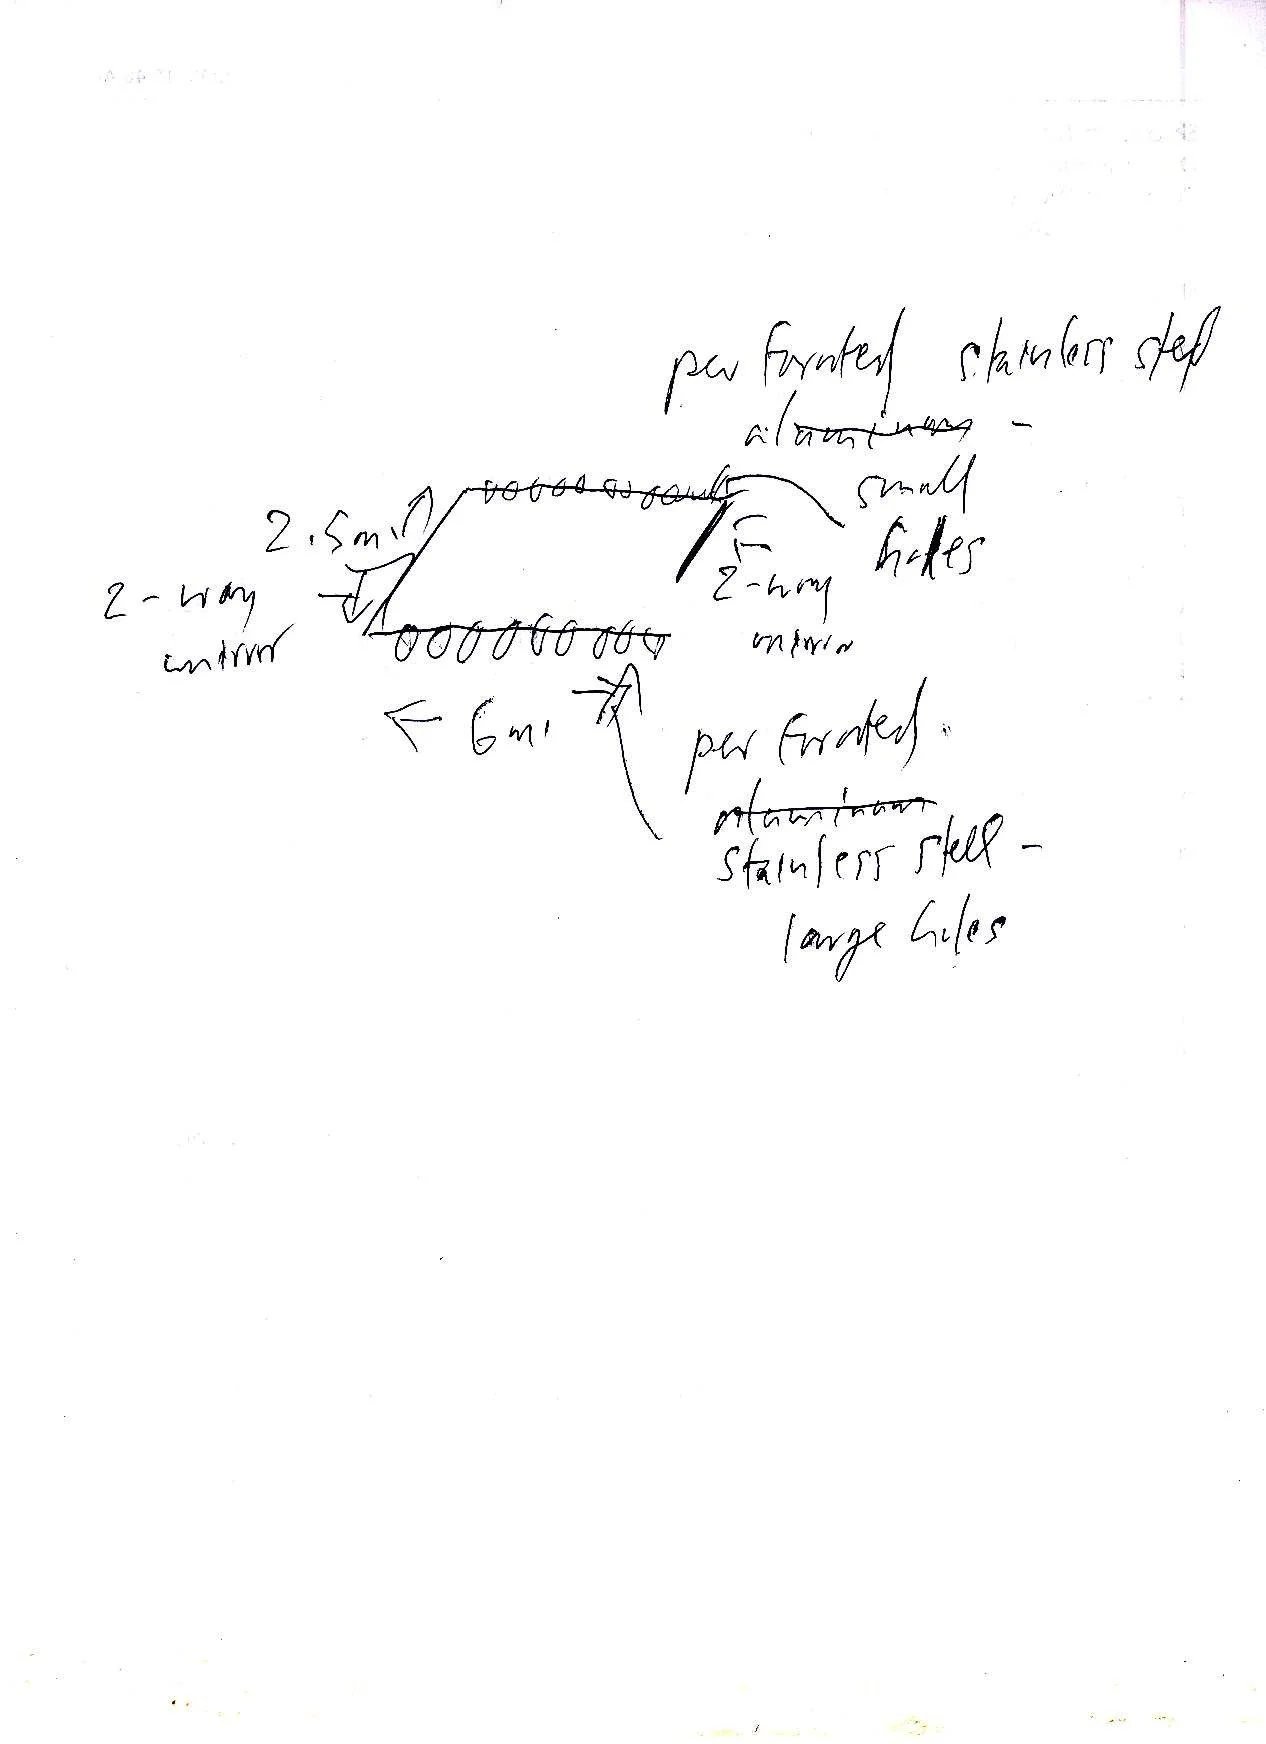 perforated stainless steel
aluminum -
small
holes
2.5m.
2-way
mirror
2-way
mirror
6m.
perforated
aluminum
stainless steel -
large holes